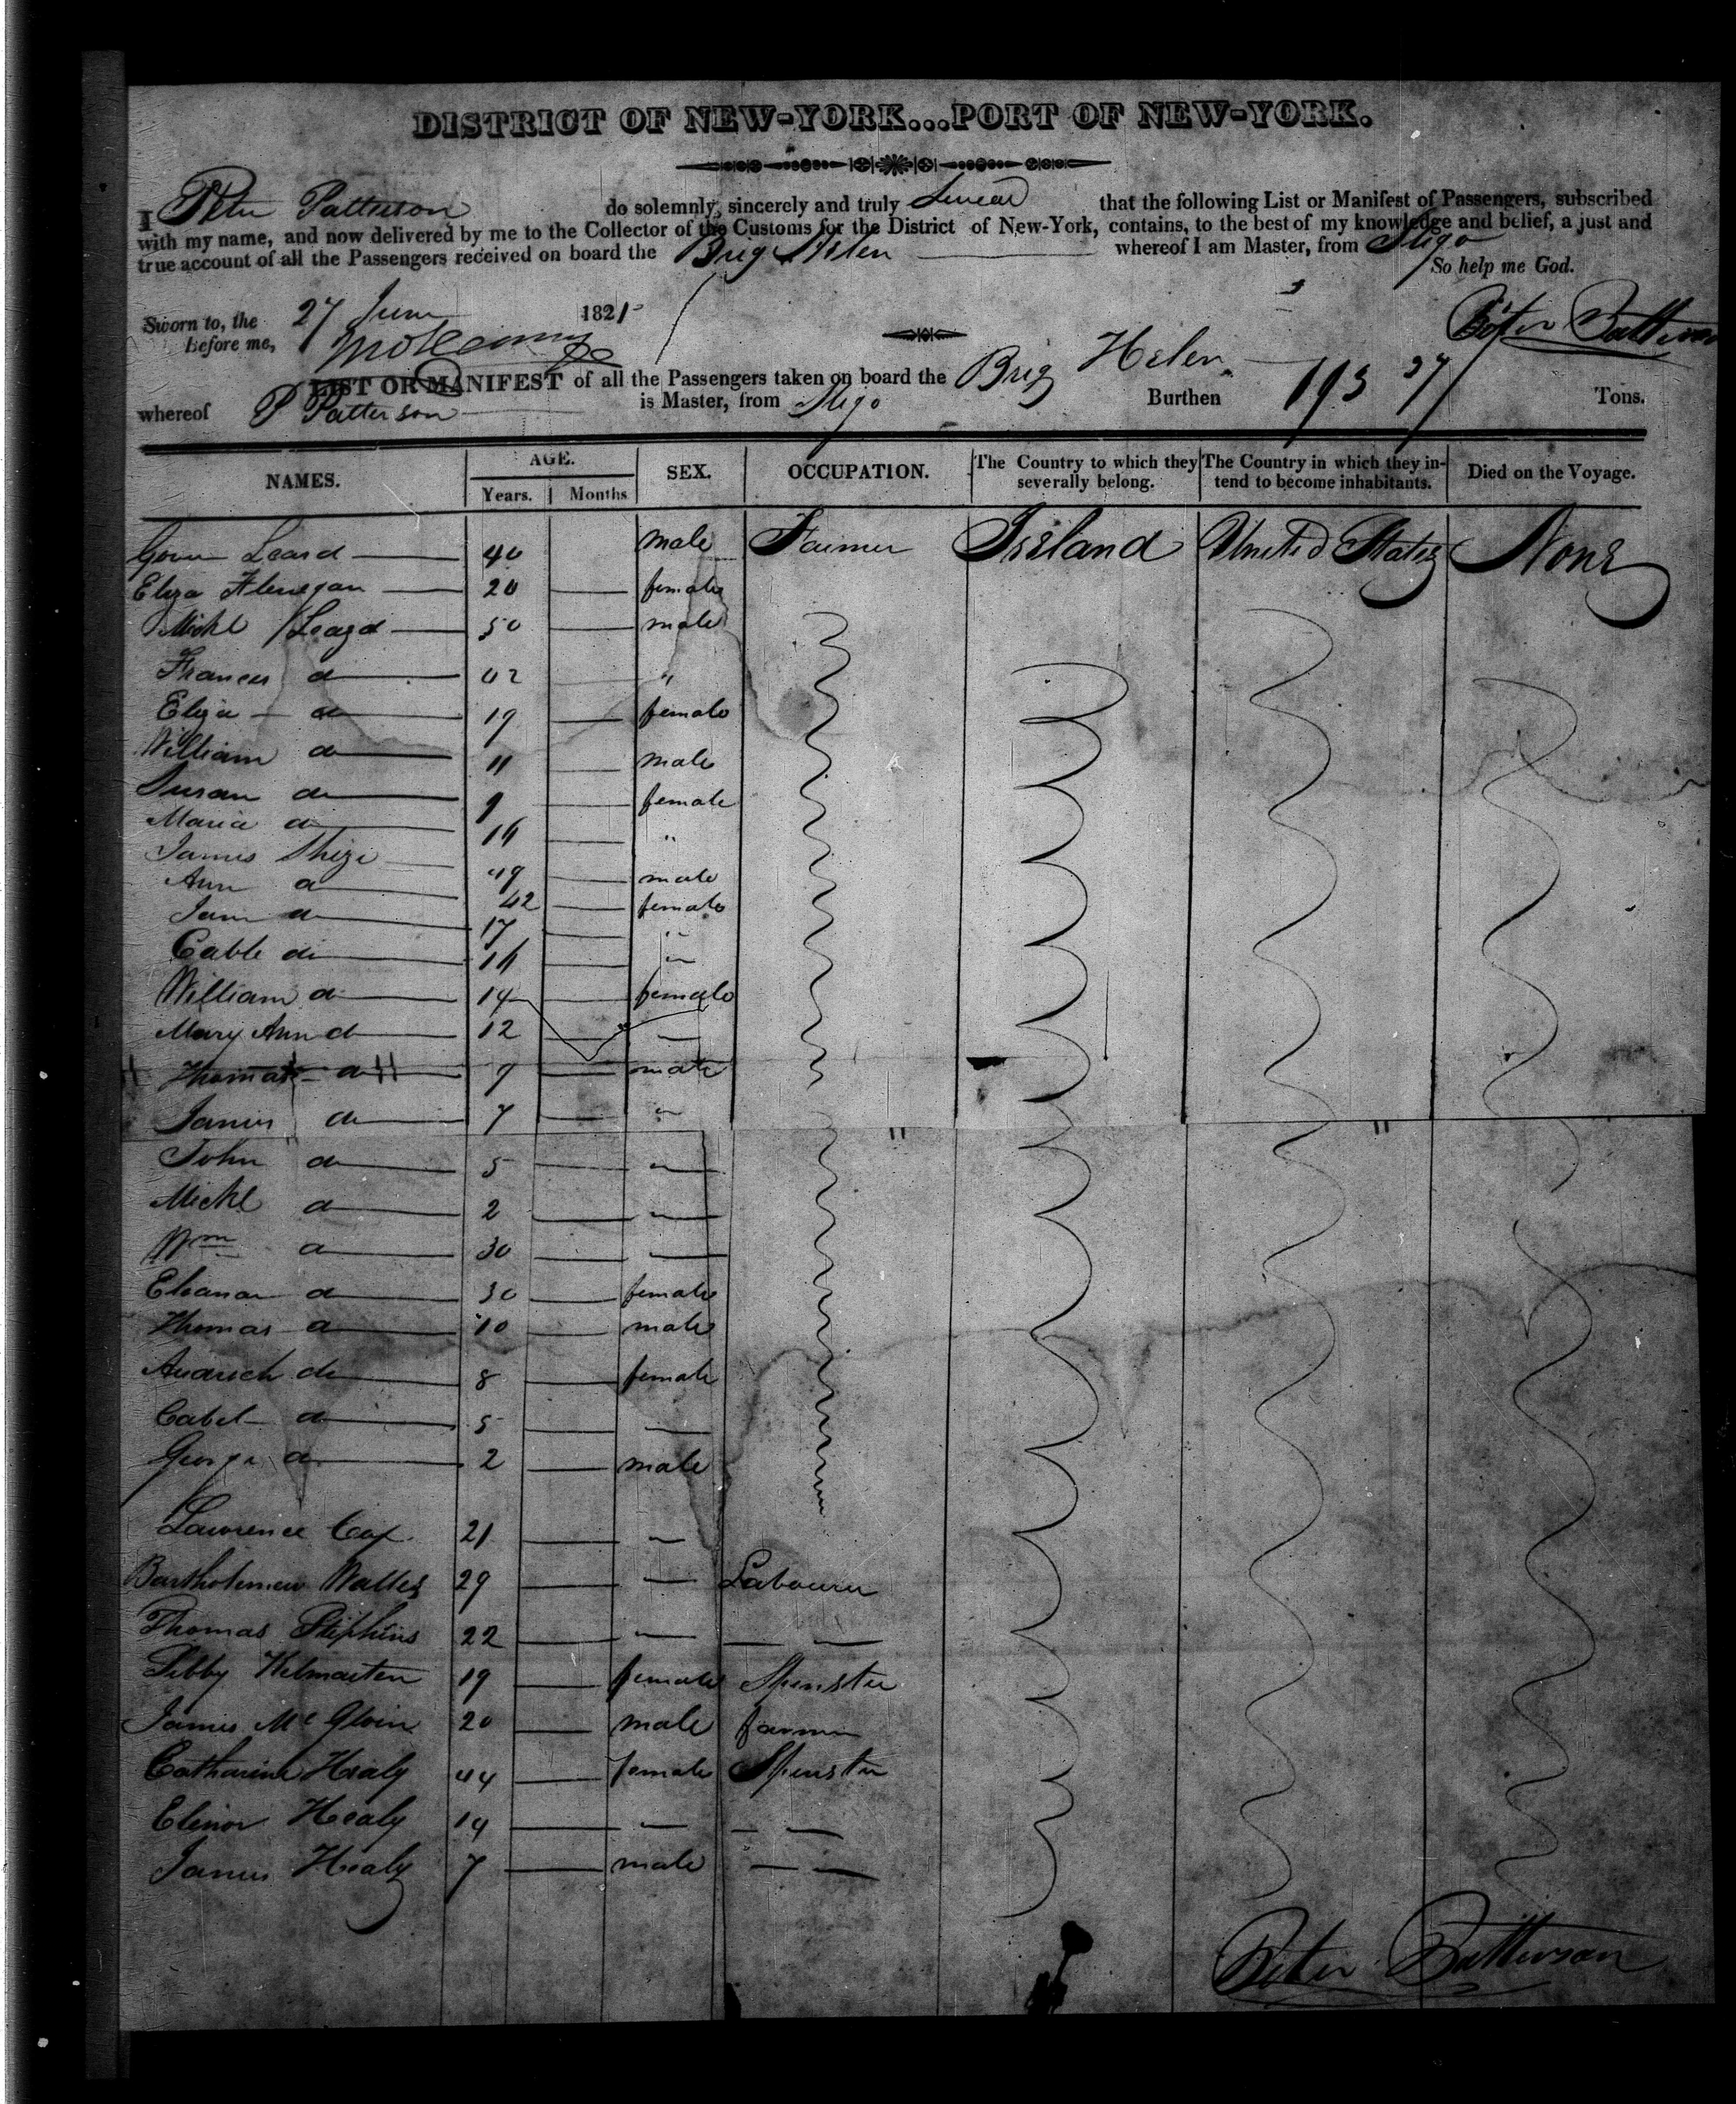 DISTRICT OF NEW-YORK...PORT OF NEW-YORK.
I Peter Patterson do solemnly, sincerely and truly Swear that the following List or Manifest of Passengers, subscribed
with my name, and now delivered by me to the Collector of the Customs for the District of New-York, contains, to the best of my knowledge and belief, a just and
true account of all the Passengers received on board the Brig Helen whereof I am Master, from Sligo
So help me God.
Sworn to, the 27 June 1825
Before me,
Peter Patterson
LIST OR MANIFEST of all the Passengers taken on board the Brig Helen
whereof P Patterson is Master, from Sligo Burthen 193 37 Tons.
NAMES. AGE. SEX. OCCUPATION. The Country to which they severally belong. The Country in which they intend to become inhabitants. Died on the Voyage.
Years. Months
Leard 40 male Farmer Ireland United States None
Eliza Flenegan 20 female
Michl Leard 50 male
Frances do 02 "
Eliza do 19 female
William do 11 male
Susan do 9 female
Maria do 16 "
James 49 male
Ann do 42 female
Jane do 17 "
Cable do 16 "
William do 14 female
Mary Ann do 12
Thomas do 9 male
James do 7 "
John do 5 "
Michl do 2 "
Wm do 30
Eleanor do 30 female
Thomas do 10 male
do 8 female
Cabel do 5
George do 2 male
Lawrence Cox 21 "
Bartholemew Walles 29 — Labourer
Thomas Stephens 22 — — —
Sibby Kilmarten 19 female Spinster
James McGloin 20 male farmer
Catharine Healy 44 female Spinster
Elenor Healy 14 — — —
James Healy 7 male — —
Peter Patterson